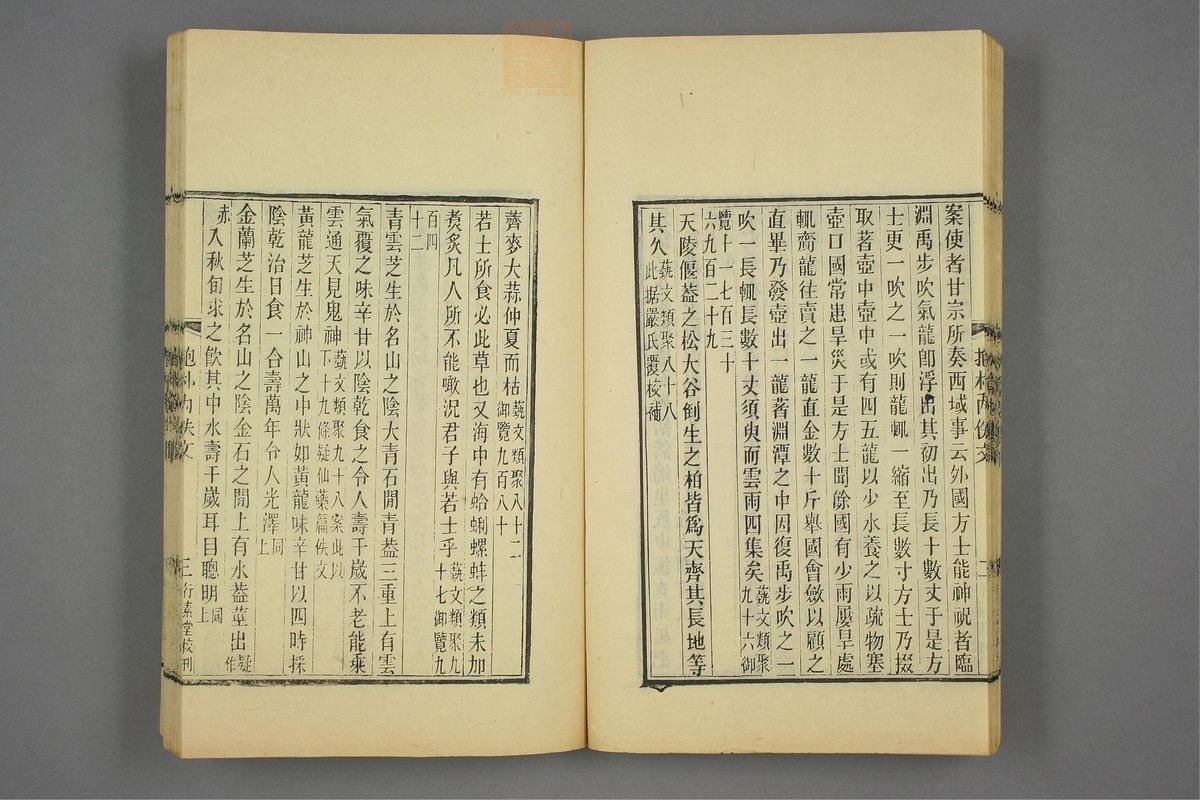 案使者甘宗所奏西域事云外國方士能神祝者臨
淵禹步吹氣龍卽浮出其初出乃長十數丈于是方
士更一吹之一吹則龍輒一縮至長數寸方士乃掇
取著壺中壺中或有四五龍以少水養之以疏物塞
壺口國常患旱災于是方士聞餘國有少雨屢旱處
輒齎龍往賣之一龍直金數十斤舉國會斂以顧之
直畢乃發壺出一龍著淵潭之中因復禹步吹之一
吹一長輒長數十丈須臾而雲雨四集矣藝文類聚
九十六御
覽十一七百三十
六九百二十九
天陵偃葢之松大谷倒生之柏皆爲天齊其長地等
其久藝文類聚八十八
此据嚴氏覆校補
二
薺麥大蒜仲夏而枯藝文類聚八十二
御覽九百八十
若士所食必此草也又海中有蛤蜊螺蚌之類未加
煑炙凡人所不能噉況君子與若士乎藝文類聚九
十七御覽九
百四
十二
青雲芝生於名山之陰大青石閒青葢三重上有雲
氣覆之味辛甘以陰乾食之令人壽千歲不老能乘
雲通天見鬼神藝文類聚九十八案此以
下十九條疑仙藥篇佚文
黃龍芝生於神山之中狀如黃龍味辛甘以四時採
陰乾治日食一合壽萬年令人光澤同
上
金蘭芝生於名山之陰金石之閒上有水葢莖出疑
作
赤入秋旬求之飮其中水壽千歲耳目聰明同
上
抱朴內佚文
三
行素堂校刊